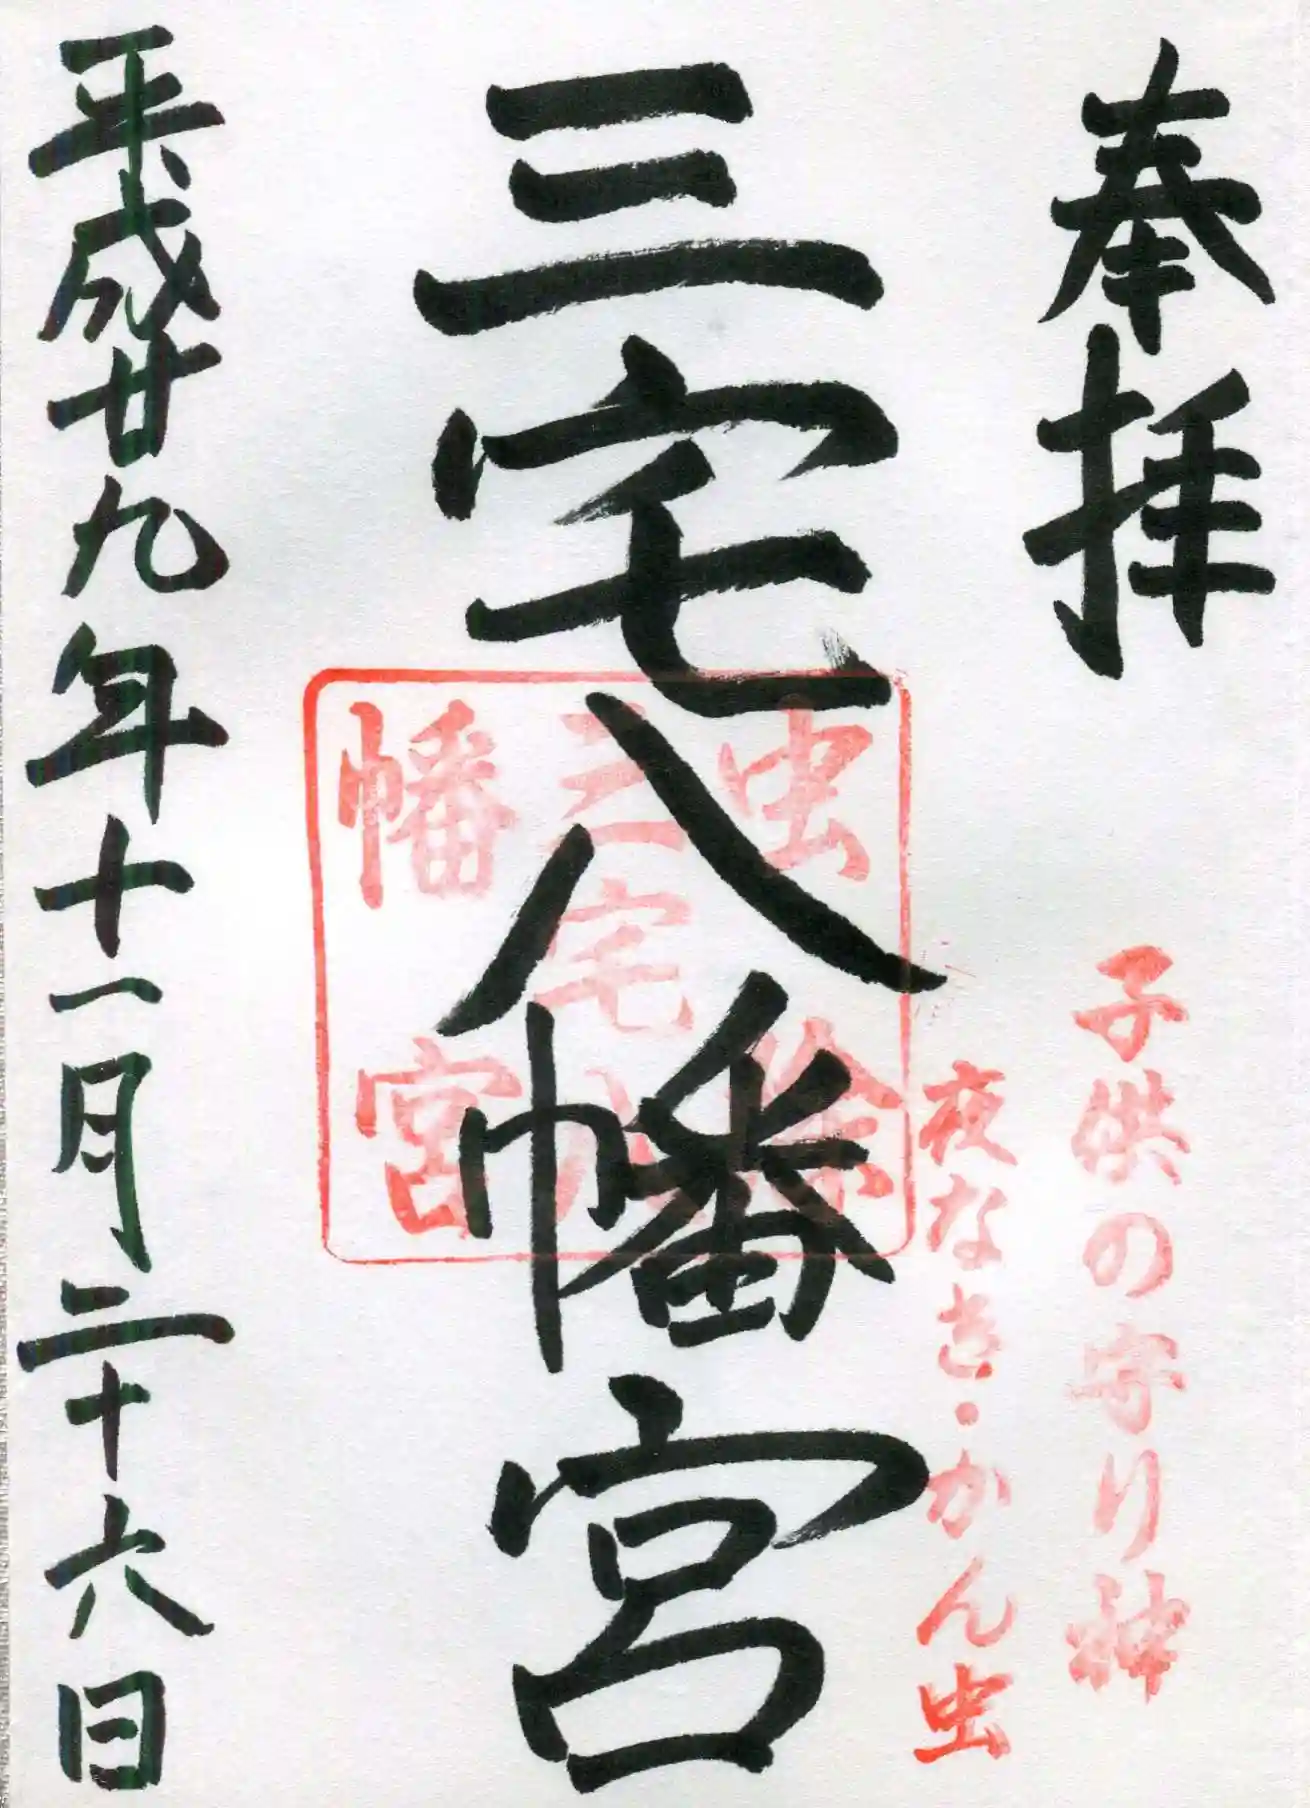 奉拝
子供の守り神
夜なき・かん虫
三宅八幡宮
虫除
三宅八
幡宮
平成廿九年十一月二十六日